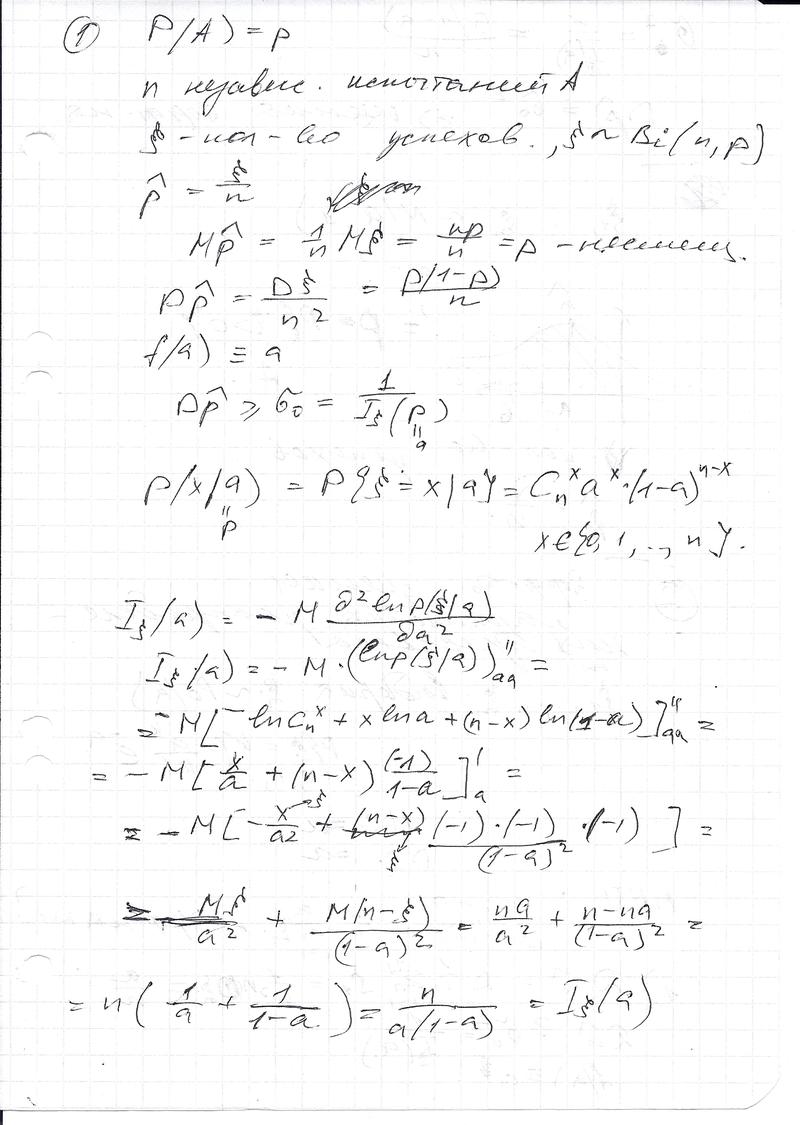 ① P(A) = p
n независ. испытаний A
ξ - кол-во успехов., ξ ~ Bi(n, p)
p̂ = ξ/n
Mp̂ = 1/n Mξ = np/n = p - несмещ.
Dp̂ = Dξ/n² = p(1-p)/n
f(a) ≡ a
Dp̂ ≥ σ₀ = 1/I_ξ(p)
‖
a
P(x/a) = P{ξ = x/a} = C_n^x a^x · (1-a)^(n-x)
‖
p
x ∈ {0, 1, .., n}.
I_ξ(a) = - M ∂² ln p(ξ/a)/∂a²
I_ξ(a) = - M · (ln p(ξ/a))''_aa =
= - M[ ln C_n^x + x ln a + (n-x) ln(1-a) ]''_aa =
= - M[ x/a + (n-x) (-1)/(1-a) ]'_a =
= - M[ - x/a² + (n-x) (-1)·(-1)/(1-a)² · (-1) ] =
= Mξ/a² + M(n-ξ)/(1-a)² = na/a² + (n-na)/(1-a)² =
= n( 1/a + 1/(1-a) ) = n/(a(1-a)) = I_ξ(a)